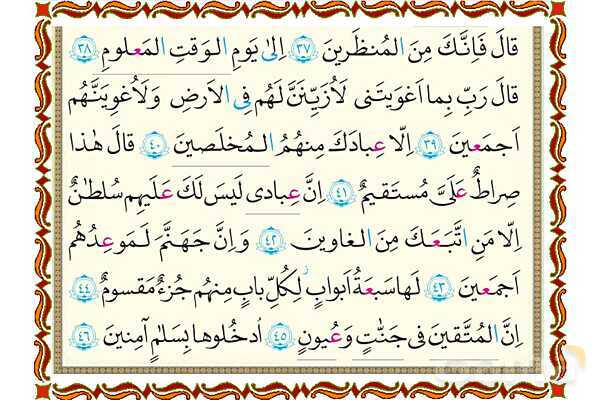 قالَ فَاِنَّكَ مِنَ المُنظَرينَ ﴿٣٧﴾ اِلىٰ يَومِ الوَقتِ المَعلومِ ﴿٣٨﴾
قالَ رَبِّ بِما اَغوَيتَنى لَاُزَيِّنَنَّ لَهُم فِى الاَرضِ وَلَاُغوِيَنَّهُم
اَجمَعينَ ﴿٣٩﴾ اِلّا عِبادَكَ مِنهُمُ المُخلَصينَ ﴿٤٠﴾ قالَ هٰذا
صِراطٌ عَلَىَّ مُستَقيمٌ ﴿٤١﴾ اِنَّ عِبادى لَيسَ لَكَ عَلَيهِم سُلطٰنٌ
اِلّا مَنِ اتَّبَعَكَ مِنَ الغاوينَ ﴿٤٢﴾ وَاِنَّ جَهَنَّمَ لَمَوعِدُهُم
اَجمَعينَ ﴿٤٣﴾ لَها سَبعَةُ اَبوابٍ لِكُلِّ بابٍ مِنهُم جُزءٌ مَقسومٌ ﴿٤٤﴾
اِنَّ المُتَّقينَ فى جَنّٰتٍ وَعُيونٍ ﴿٤٥﴾ اُدخُلوها بِسَلٰمٍ آمِنينَ ﴿٤٦﴾